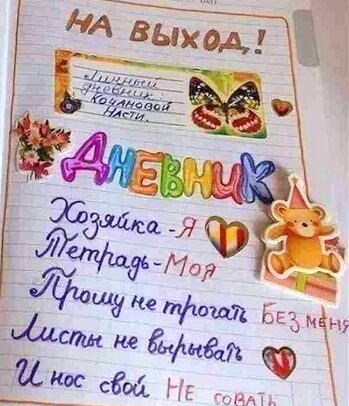 НА ВЫХОД,!
Личный
дневник
КОЧАНОВОЙ
НАСТИ.
ДНЕВНИК
Хозяйка - Я
Тетрадь - Моя
Прошу не трогать БЕЗ МЕНЯ
Листы не вырывать
И нос свой НЕ СОВАТЬ